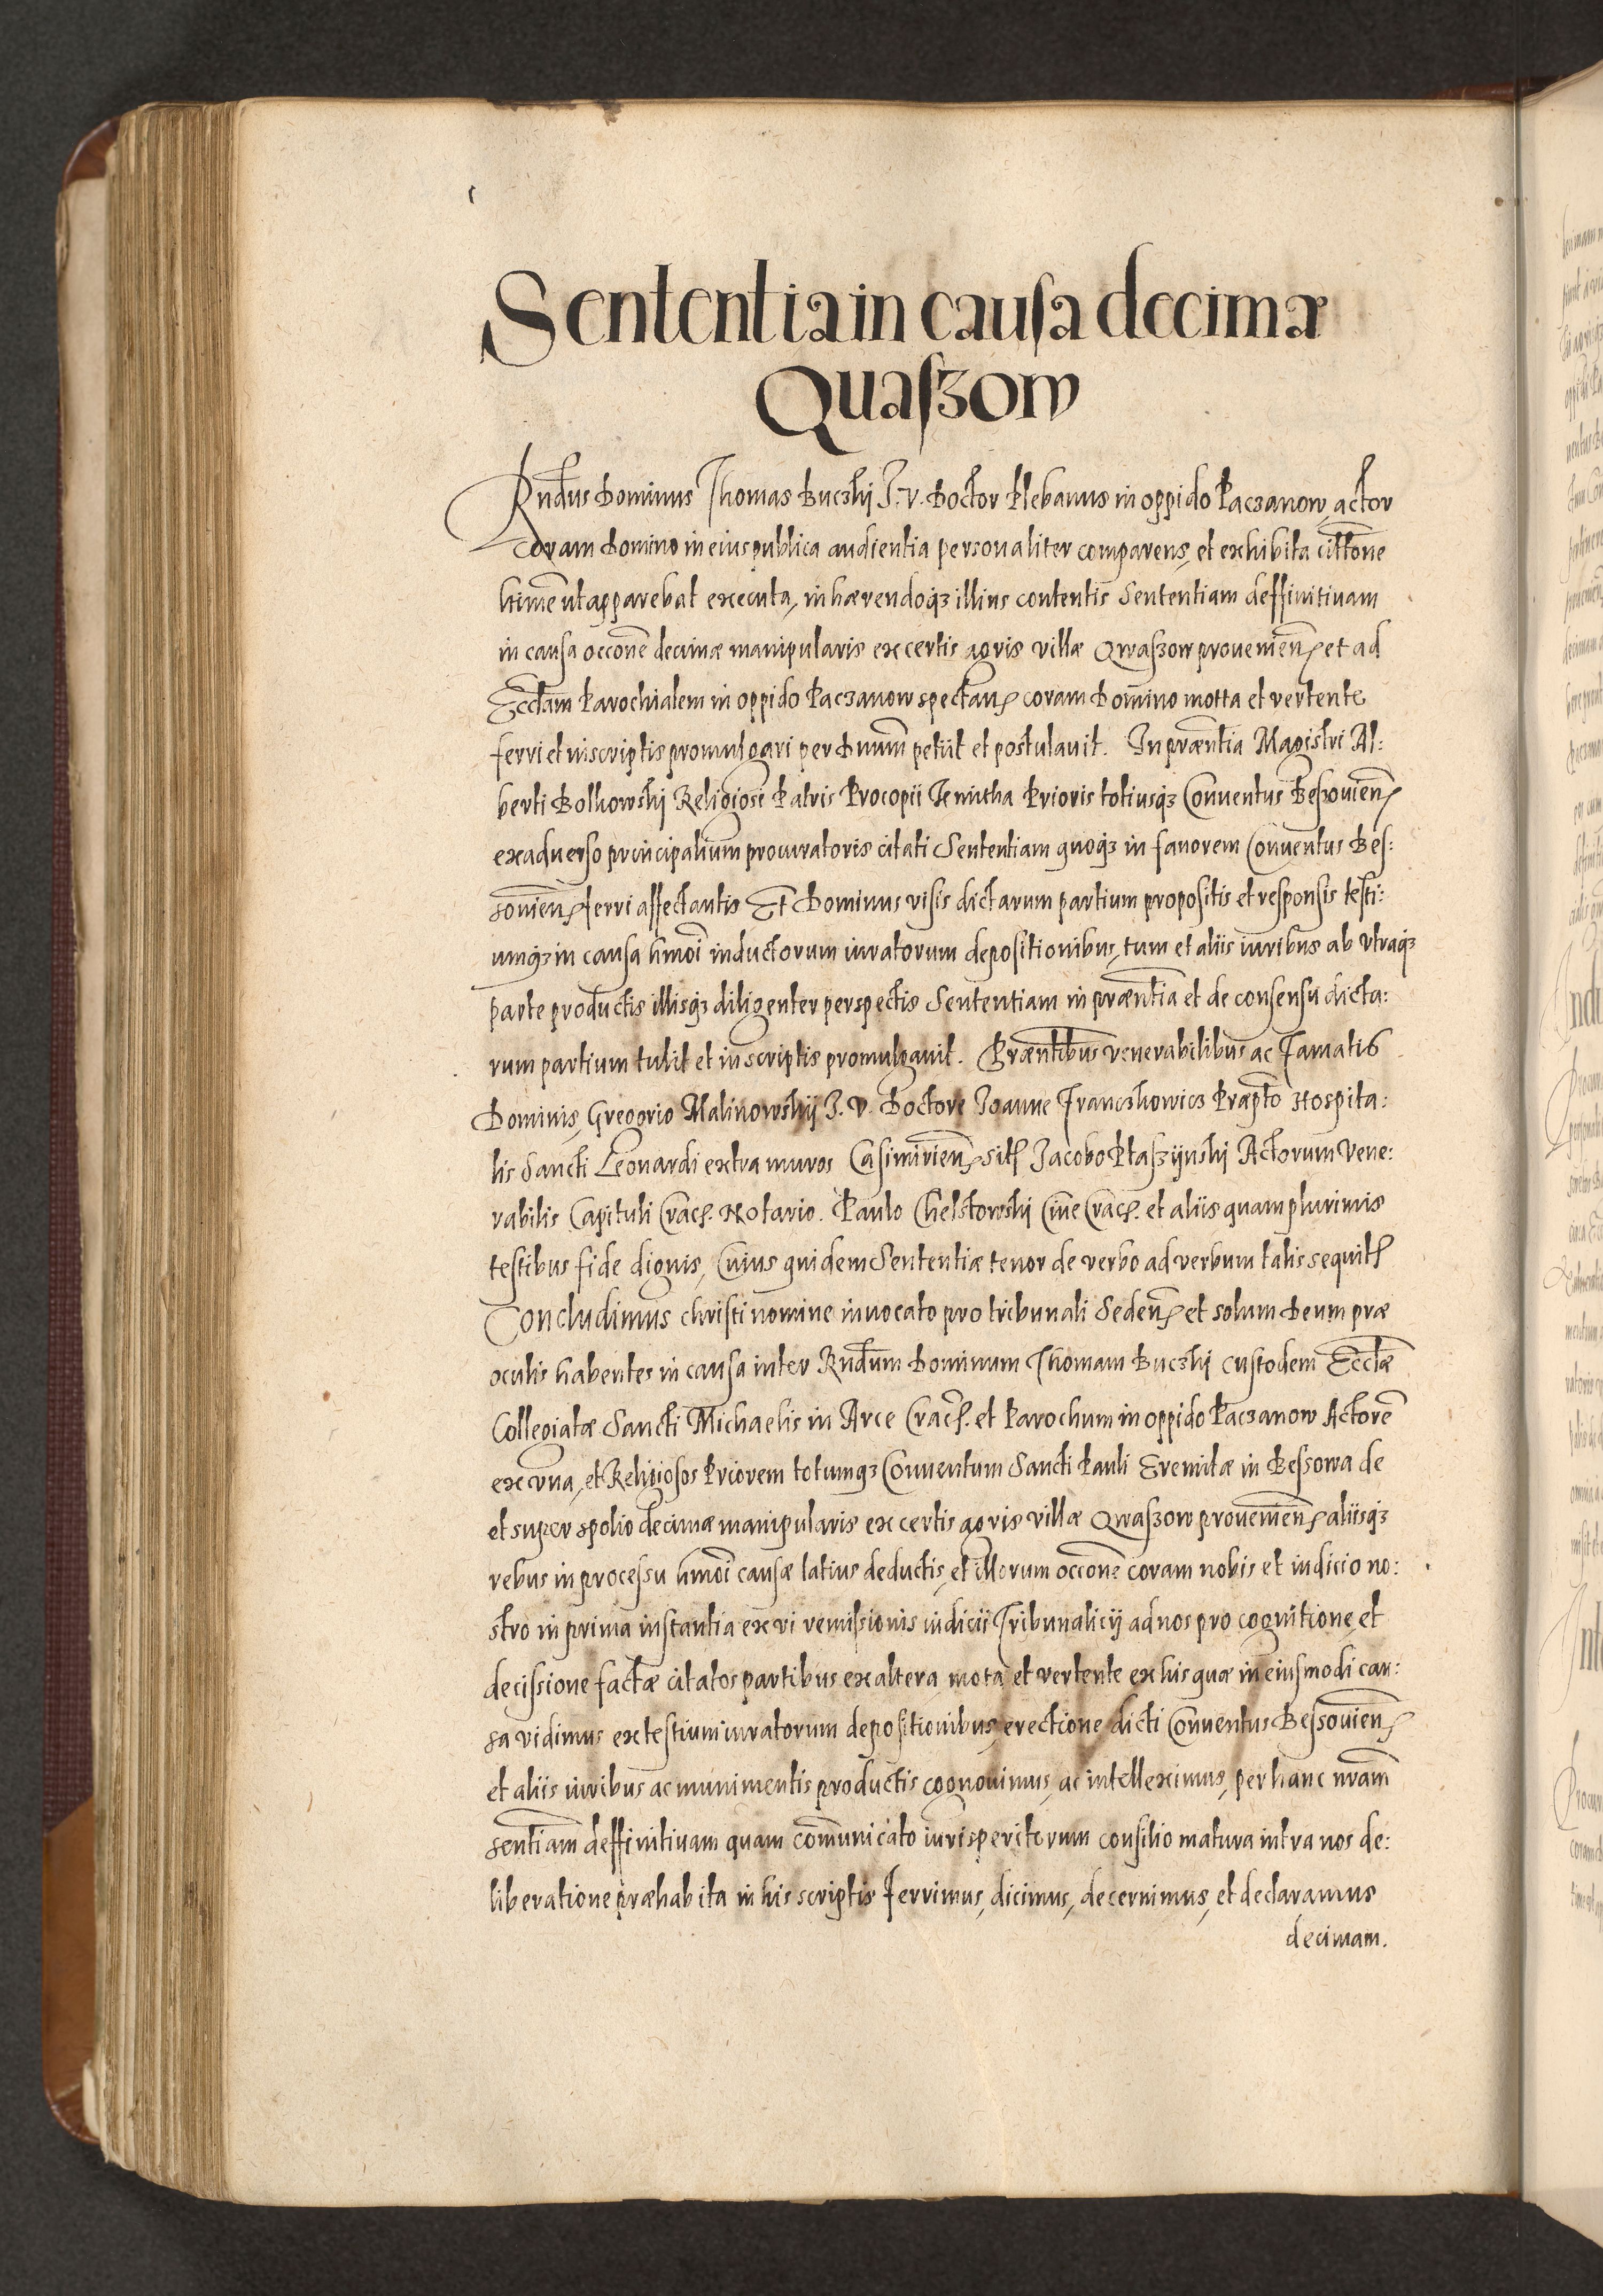 Sententia in causa decimæ
Quaſzow
Rndus Dominus Thomas Buczki J. V. Doctor Plebanus in oppido Paczanow, actor
coram Domino in eius publica audientia personaliter comparens, et exhibita citt̄one
apparebat executa, inhærendoqꝫ illius contentis Sententiam deffinitiuam
in causa occōne decimæ manipularis ex certis agris villæ Qwaſzow prouenien̄ et ad
Eccl̄am Parochialem in oppido Paczanow spectan̄ coram Domino motta et vertente
ferri et in scriptis promulgari per Dnum̄ petiit et postulauit. In præn̄tia Magistri Al:
berti Bolkowski Religiosi Patris Procopii Prioris totiusqꝫ Conuentus Beſzouien̄
ex aduerso principalium procuratoris citati Sententiam quoqꝫ in fauorem Conuentus Beſ:
souien̄ ferri affectantis Et Dominus visis dictarum partium propositis et responsis teſti:
umqꝫ in causa hmōi inductorum iuratorum depositionibus, tum et aliis iuribus ab vtraqꝫ
parte productis illisqꝫ diligenter perspectis Sententiam in præn̄tia et de consensu dicta:
rum partium tulit et in scriptis promulgauit. Præn̄tibus venerabilibus ac Famatis
Dominis, Gregorio Malinowskij J. V. Doctore Joanne Franczkowicz Præpt̄o Hospita:
lis Sancti Leonardi extra muros Casimirien̄ sit̄ Jacobo Ptaſzÿnski Actorum Vene:
rabilis Capituli Crac̄. Notario. Paulo Chelstowski Ciue Crac̄. et aliis quamplurimis
teſtibus fide dignis, Cuius quidem Sententiæ tenor de verbo ad verbum talis sequit̄
Concludimus christi nomine inuocato pro tribunali Seden̄ et solum Deum præ
oculis habentes in causa inter Rndum Dominum Thomam Buczki custodem Eccl̄æ
Collegiatæ Sancti Michaelis in Arce Crac̄. et Parochum in oppido Paczanow Actorē
ex vna, et Religiosos Priorem totumqꝫ Conuentum Sancti Pauli Eremitæ in Beſsowa de
et super spolio decimæ manipularis ex certis agris villæ Qwaſzow prouenien̄ aliisqꝫ
rebus in proceſsu hmōi causæ latius deductis, et illorum occōne coram nobis et iudicio no:
stro in prima instantia ex vi remiſsionis iudicii Tribunalicij ad nos pro cognitione, et
deciſsione factæ citatos partibus ex altera, mota et vertente ex his quæ in eiusmodi cau:
sa vidimus ex teſtium iuratorum depositionibus, erectione dicti Conuentus Beſsouien̄
et aliis iuribus ac munimentis productis cognouimus, ac intelleximus, per hanc nram̄
sentiam̄ deffinitiuam quam com̄unicato iurisperitorum consilio matura intra nos de:
liberatione præhabita in his scriptis Ferrimus, dicimus, decernimus, et declaramus
decimam.